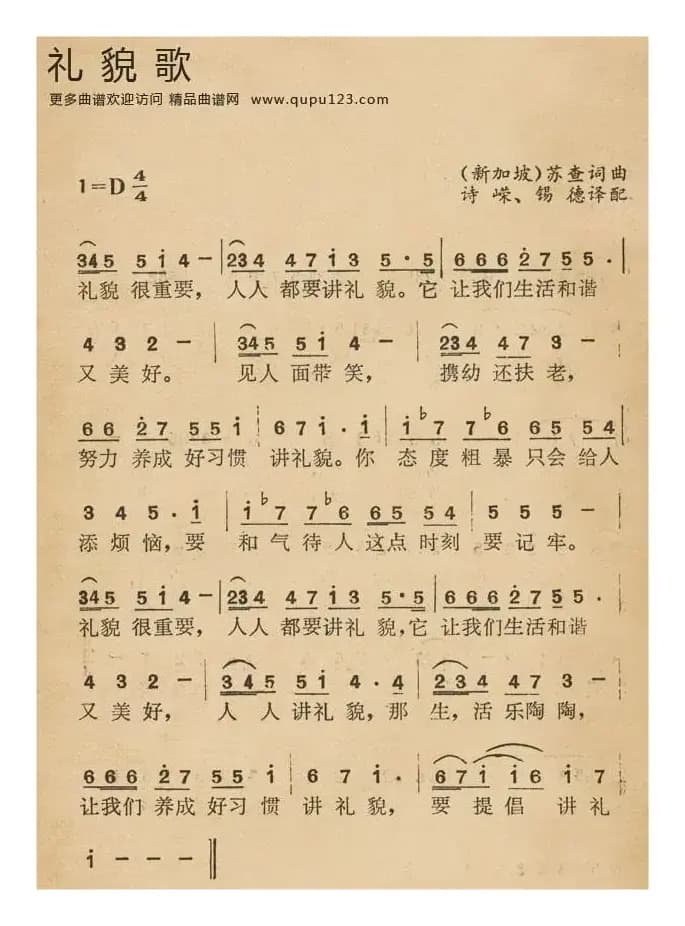 礼貌歌
更多曲谱欢迎访问 精品曲谱网 www.qupu123.com
1=D 4/4
(新加坡)苏查词曲
诗 嵘、锡 德译配
345 5 1 4 – | 234 4 7 1 3 5·5 | 666 2755·
礼貌 很重要， 人人 都要讲礼 貌。它 让我们生活和谐
4 3 2 – | 345 5 1 4 – | 234 4 7 3 –
又 美 好。 见人 面带 笑， 携幼 还扶 老，
66 27 55 1 | 671·1 | 1♭7 7♭6 65 54
努力 养成 好习惯 讲礼貌。你 态度粗暴只会给人
3 4 5·1 | 1♭7 7♭6 65 54 | 5 5 5 –
添烦恼，要 和气待人 这点 时刻 要记牢。
345 514 – | 234 4 7 1 3 5·5 | 6662755·
礼貌 很重要， 人人 都要讲礼 貌，它 让我们生活和谐
4 3 2 – | 3 4 5 5 1 4·4 | 234 47 3 –
又 美 好， 人 人 讲礼 貌，那 生，活 乐陶 陶，
666 27 55 1 | 6 7 1· | 671 16 1 7
让我们 养成 好习 惯 讲 礼 貌， 要 提 倡 讲 礼
1 – – – ‖